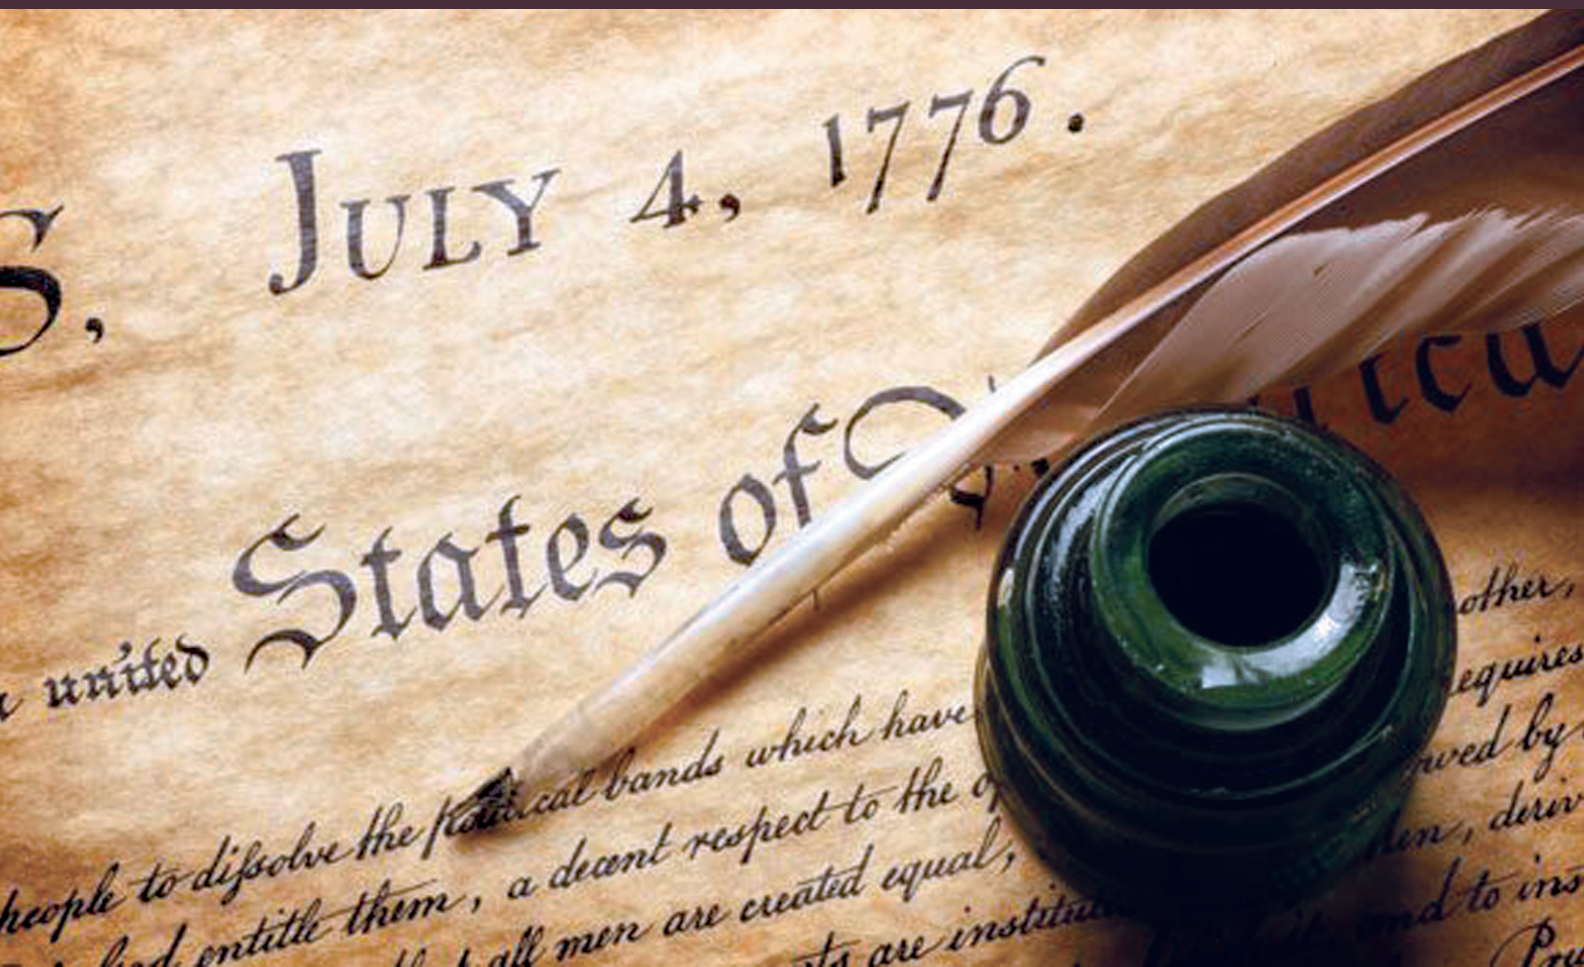 S, JULY 4, 1776.
united States of
other,
people to dissolve the political bands which have requires
entitle them, a decent respect to the
all men are created equal, by
are men, deriv
and to ins